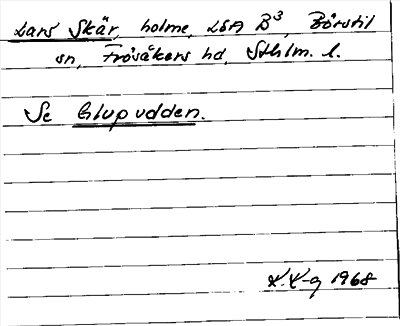 Lars Skär, holme, LSA B³, Börstil
sn, Frösåkers hd, Sthlm. l.
Se Glupudden.
K.K-g 1968